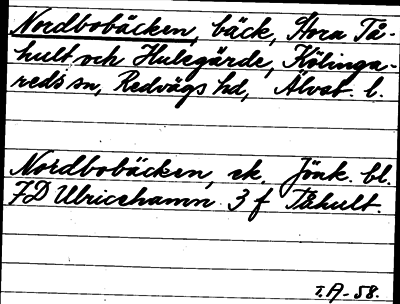 Nordbobäcken, bäck, Stora Tå-
hult och Hulegärde, Kölinga-
reds sn, Redvägs hd, Älvsb. l.
Nordbobäcken, ek. Jönk. bl.
7D Ulricehamn 3 f Tåhult.
T.A-58.